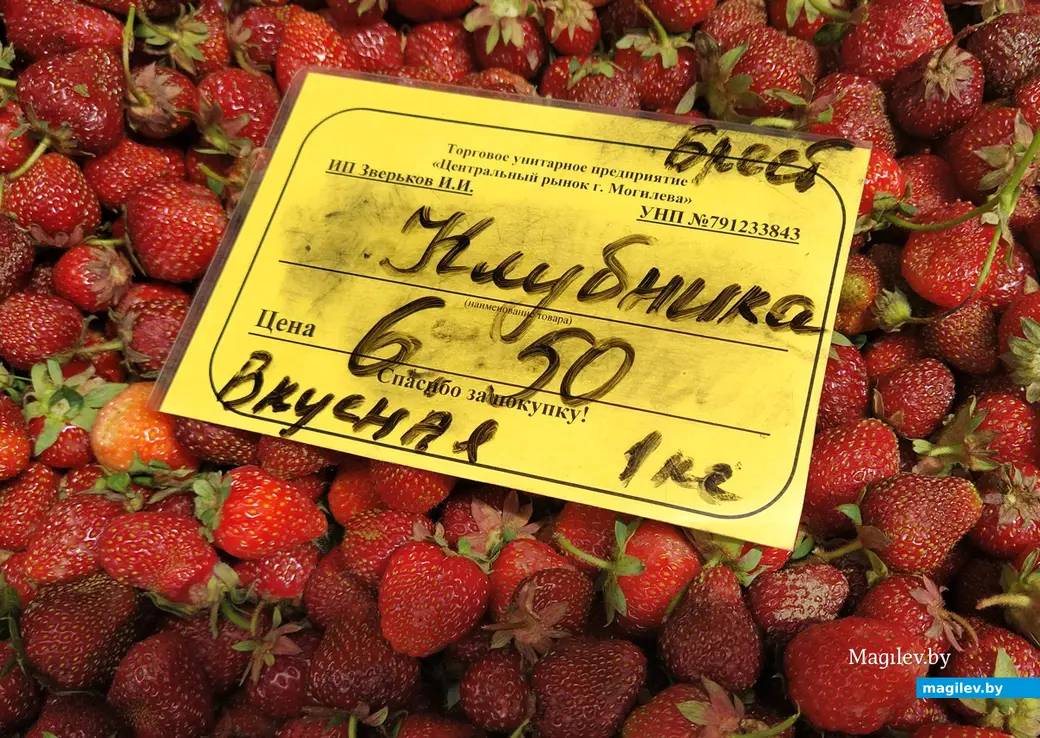 Брест
Торговое унитарное предприятие
«Центральный рынок г. Могилева»
ИП Зверьков И.И.
УНП №791233843
Клубника
(наименование товара)
Цена 6 50
Спасибо за покупку!
Вкусная 1 кг
Magilev.by
magilev.by